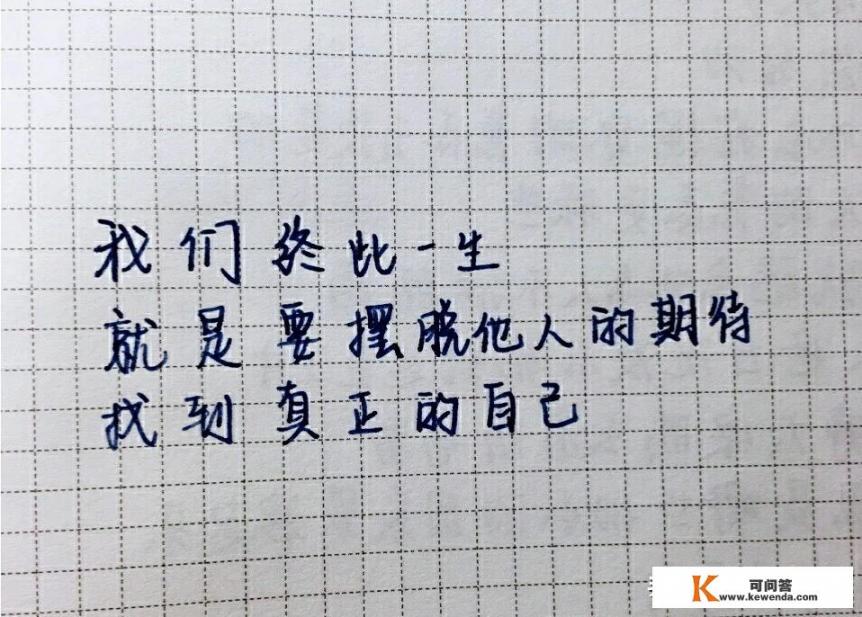 我们终此一生
就是要摆脱他人的期待
找到真正的自己
可问答
www.kewenda.com